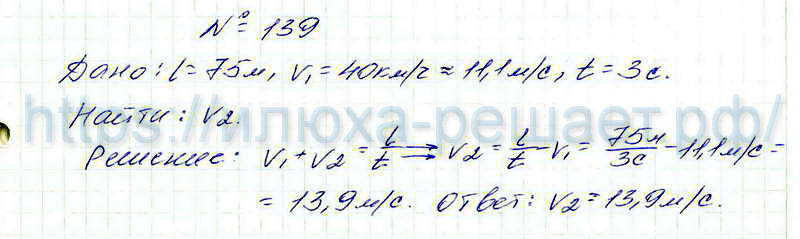 № 139
Дано: l = 75м, v₁ = 40км/ч ≈ 11,1м/с, t = 3с.
Найти: v₂.
https://илюха-решает.рф/
Решение: v₁ + v₂ = l/t ⟹ v₂ = l/t - v₁ = 75м/3с - 11,1м/с =
= 13,9м/с. Ответ: v₂ = 13,9м/с.